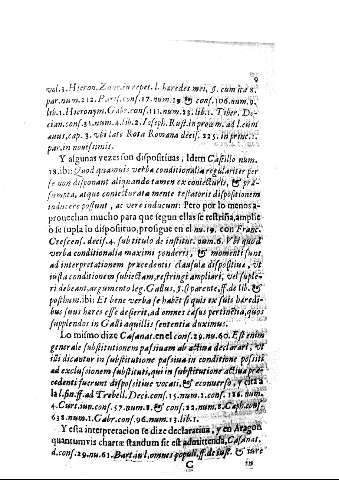 9
vol.3. Hieron. Zanc. in repet. l. haeredes mei, §. cum ita 8.
par. num. 212. Paris. cons. 17. num. 19 & cons. 106. num. 9.
lib. 1. Hieronym. Gabr. cons. 111. num. 23. lib. 1. Tiber. De-
cian. cons. 31. num. 4. lib. 2. Ioseph. Rust. in proœm. ad l. cum
auus, cap. 3. vbi late Rota Romana decis. 225. in princ. 1.
par. in nouissimis.
Y algunas vezes son dispositiuas, Idem Castillo num.
18. ibi: Quod quamuis verba conditionalia regulariter per
se non disponant aliquando tamen ex coniecturis, & præ-
sumpta, atque coniecturata mente testatoris dispositionem
inducere possunt, ac vere inducunt: Pero por lo menos a-
prouechan mucho para que segun ellas se restriña, amplie
ò se supla lo dispositiuo, prosigue en el nu. 19. con Franc.
Crescens. decis. 4. sub titulo de institut. num. 6. Vbi quod
verba conditionalia maximi ponderis, & momenti sunt
ad interpretationem præcedentis clausula dispositiua, vt
iuxta conditionem subiectam stringi ampliari, vel supple-
ri debeant, argumento leg. Gallus, §. si parente, ff. de lib. &
posthum. ibi: Et bene verba se habēt si quis ex suis haredi-
bus suus hæres esse desierit, ad omnes casus pertinētia, quos
supplendos in Galli aquillij sententia duximus.
Lo mismo dize Casanat. en el cons. 29. nu. 60. Est enim
generale substitutionem passiuam ab actiua declarari, vt
isti dicantur in substitutione passiua in conditione positi
ad exclusionem substituti, qui in substitutione actiua præ-
cedenti fuerunt dispositiue vocati, & econuerso, y cita a
la l. fin. ff. ad Trebell. Deci. cons. 15. num. 1. cons. 186. num.
4. Curt. iun. cons. 57. num. 8. & cons. 22. num. 8. Caph. cons.
638. num. 1. Gabr. cons. 96. num. 13. lib. 1.
Y esta interpretacion se dize declaratiua, y en Aragon
quantumvis chartæ standum sit est admittenda, Casanat.
d. cons. 29. nu. 61. Bart. in l. omnes populi, ff. de iust. & iure
C